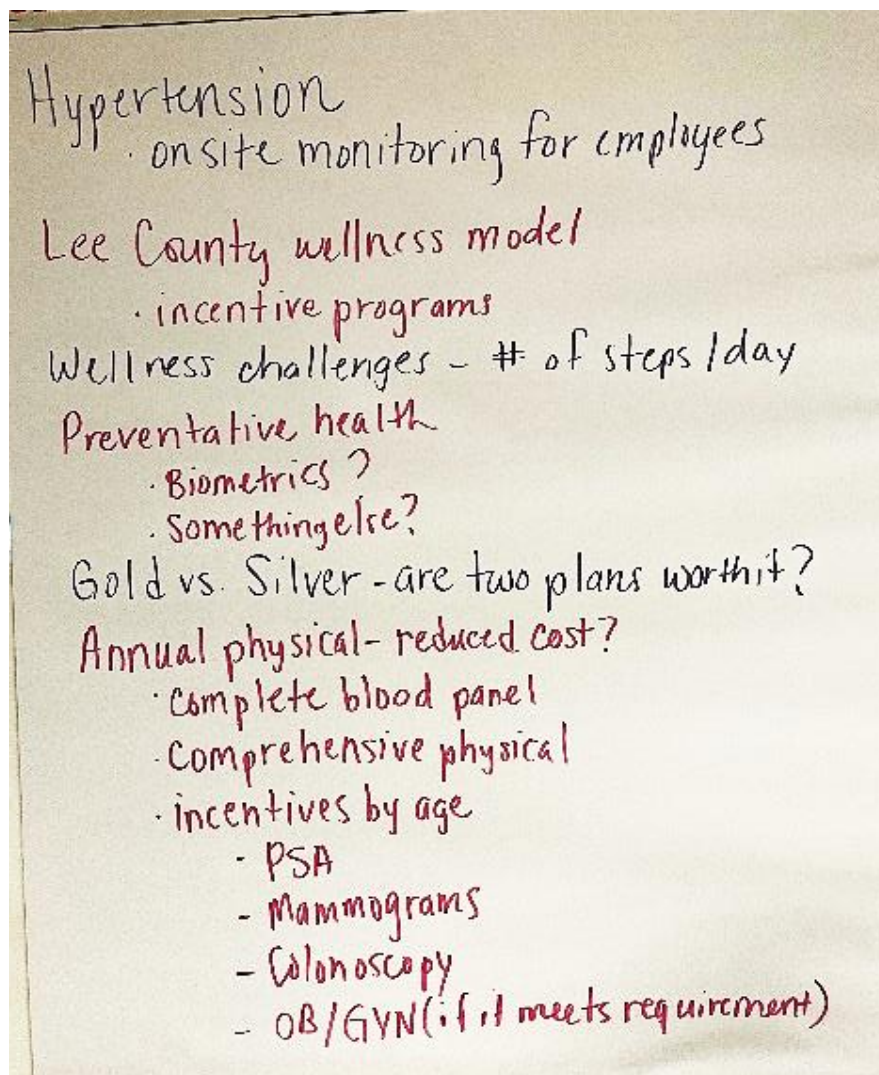 Hypertension
· onsite monitoring for employees
Lee County wellness model
· incentive programs
Wellness challenges - # of steps/day
Preventative health
· Biometrics?
· Something else?
Gold vs. Silver - are two plans worth it?
Annual physical - reduced cost?
· Complete blood panel
· Comprehensive physical
· incentives by age
- PSA
- Mammograms
- Colonoscopy
- OB/GYN (if it meets requirement)